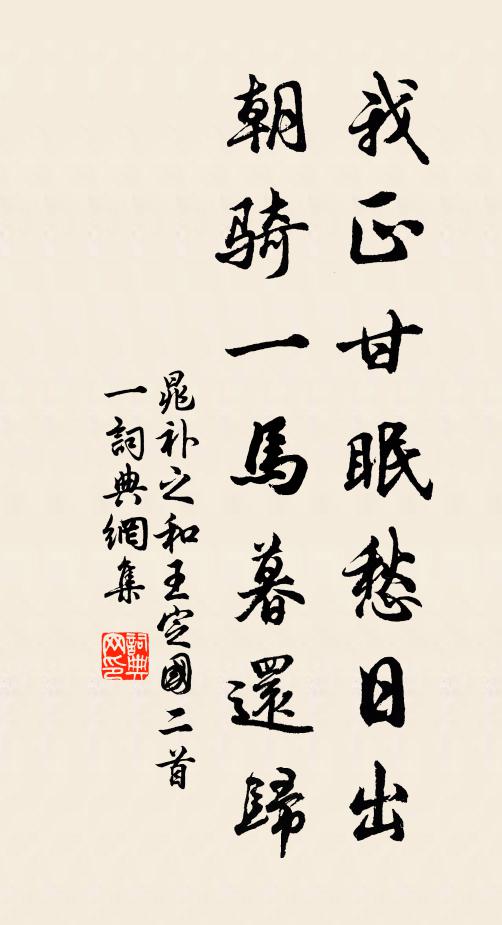 我正甘眠愁日出
朝騎一馬暮還歸
晁补之和王定國二首
一詞典網集
詞典
网印